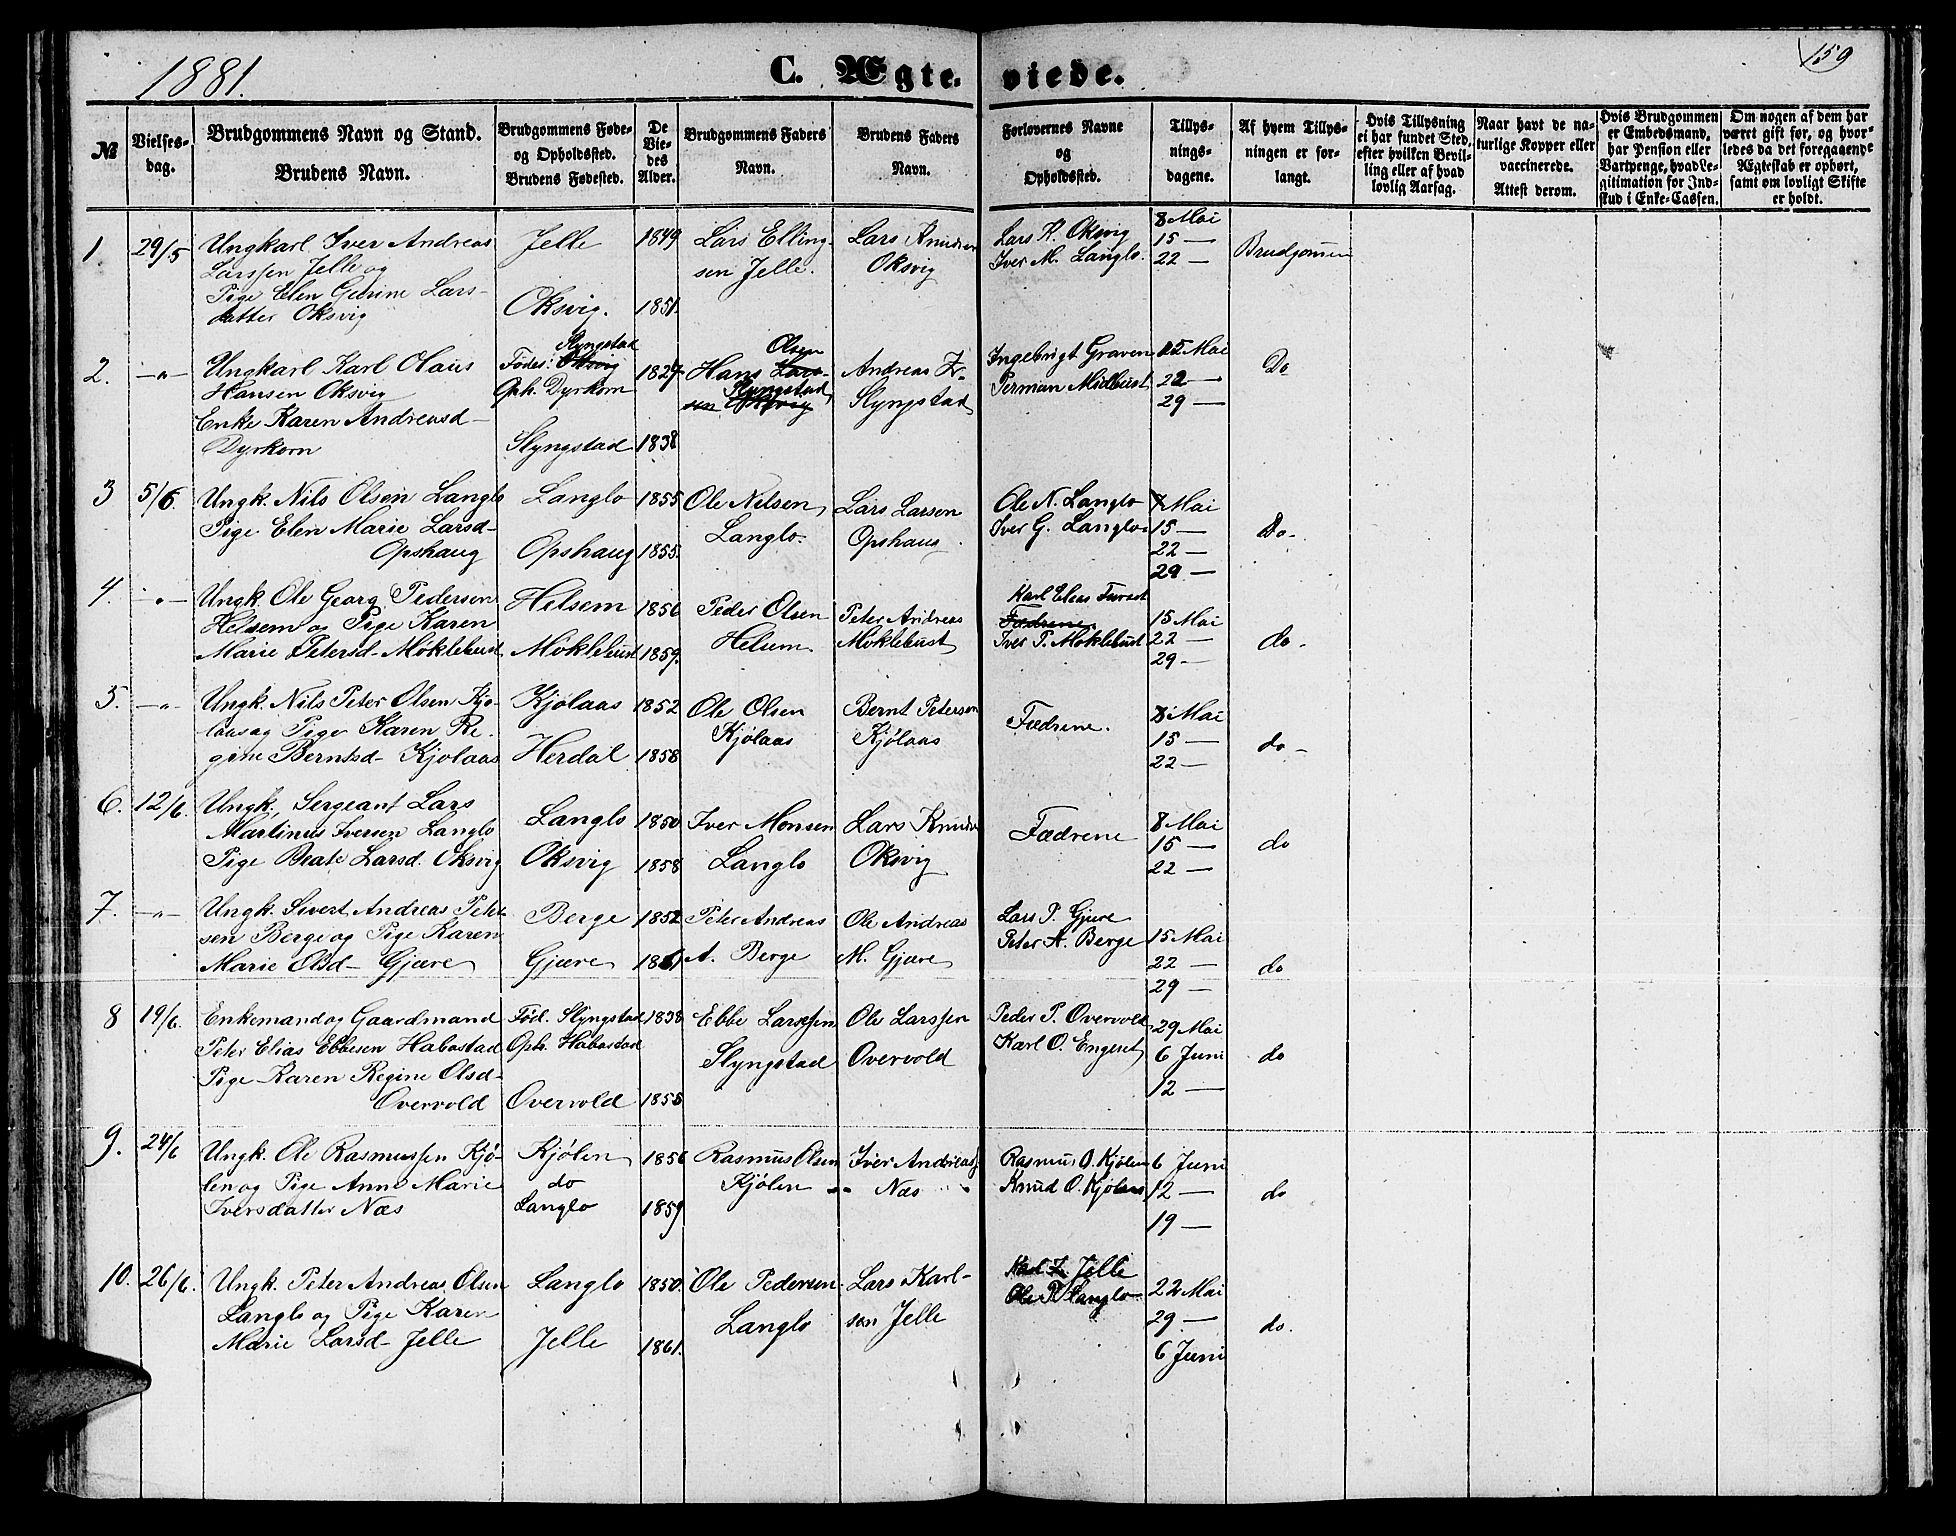 1881.
C. Ægteviede.
159
№
Vielsesdag.
Brudgommens Navn og Stand.
Brudens Navn.
Brudgommens Føde- og Opholdssted.
Brudens Fødested.
De Viedes Alder.
Brudgommens Faders Navn.
Brudens Faders Navn.
Forlovernes Navne og Opholdssted.
Tillysningsdagene.
Af hvem Tillysningen er forlangt.
Hvis Tillysning ei har fundet Sted, efter hvilken Bevilling eller af hvad lovlig Aarsag.
Naar havt de naturlige Kopper eller vaccinerede.
Attest derom.
Hvis Brudgommen er Embedsmand, har Pension eller Vartpenge, hvad Legitimation for Indskud i Enke-Cassen.
Om nogen af dem har været gift før, og hvorledes da det foregaaende Ægteskab er ophørt, samt om lovligt Skifte er holdt.
1. 29/5 Ungkarl Iver Andreas Jelle 1849 Lars Elling- Lars Knudsen Lars K. Oksvig 8 Mai
Larssen Jelle og sen Jelle. Oksvig Iver M. Langlo. 15 — Brudgommen
Pige Elen Gurine Lars- 22 —
datter Oksvig Oksvig. 1851.
2. —"— Ungkarl Karl Olaus Fødes: Oksvig Slyngstad 1827 Hans Lars- Olsen Andreas Ingebrigt Graven 15 Mai Do
Hansen Oksvig Oph. Dyrkorn sen Oksvig Slyngstad Slyngstad Perman Midbust 22 —
Enke Karen Andreasd- 29 —
Dyrkorn Slyngstad 1838
3 5/6. Ungk. Nils Olsen Langlo Langlo 1855 Ole Nilsen Lars Larsen Ole N. Langlo 7 Mai
Pige Elen Marie Larsd- Langlo. Opshaug Iver G. Langlo. 15 — Do.
Opshaug Opshaug 1855. 22 —
29 —
4. —"— Ungk. Ole Georg Pedersen Helsem 1856 Peder Olsen Peter Andreas Karl Elias
Helsem og Pige Karen Helsem Moklebust Fædrene 15 Mai
Marie Petersd- Moklebust Moklebust 1859. Iver P. Moklebust 22 — do.
29 —
5. —"— Ungk. Nils Peter Olsen Kjo- Kjolaas 1852 Ole Olsen Bernt Petersen Fædrene. 8 Mai
laas og Pige Karen Re- Kjølaas Kjølaas 15 — do —
gine Berntsd- Kjolaas Herdal 1858 22 —
6. 12/6. Ungk. Sergeant Lars Langlo 1850 Iver Monsen Lars Knuds Fædrene 8 Mai
Martinus Iversen Langlo Langlo Oksvig 15 — do
Pige Beate Larsd. Oksvig Oksvig 1858 22 —
7. —"— Ungk. Sivert Andreas Peter- Berge 1852 Peter Andreas Ole Andreas Lars P. Gjære
sen Berge og Pige Karen A. Berge M. Gjære Peter A. Berge 15 Mai
Marie Olsd- Gjære Gjære 1861 22 — do
29 —
8 19/6. Enkemand og Gaardmand Fød. Slyngstad 1838 Ebbe Larssen Ole Larssen Peder P. Overvold 29 Mai
Peter Elias Ebbesen Habostad Oph. Habostad Slyngstad Overvold Karl O. Engeset 6 Juni do
Pige Karen Regine Olsd- 12 —
Overvold Overvold 1855
9. 24/6 Ungk. Ole Rasmussen Kjø- Kjølen 1856 Rasmus Olsen Iver Andreas Rasmus O. Kjølen 6 Juni
len og Pige Anne Marie do Kjølen Næs Knud O. Kjølaas 12 — do
Iversdatter Næs Langlo 1859 19 —
10. 26/6. Ungk. Peter Andreas Olsen Langlo 1850. Ole Pedersen Lars Karl- Karl L. Jelle
Langlo og Pige Karen Langlo sen Jelle Ole P. Langlo 22 Mai
Marie Larsd- Jelle Jelle 1861. 29 — do.
6 Juni